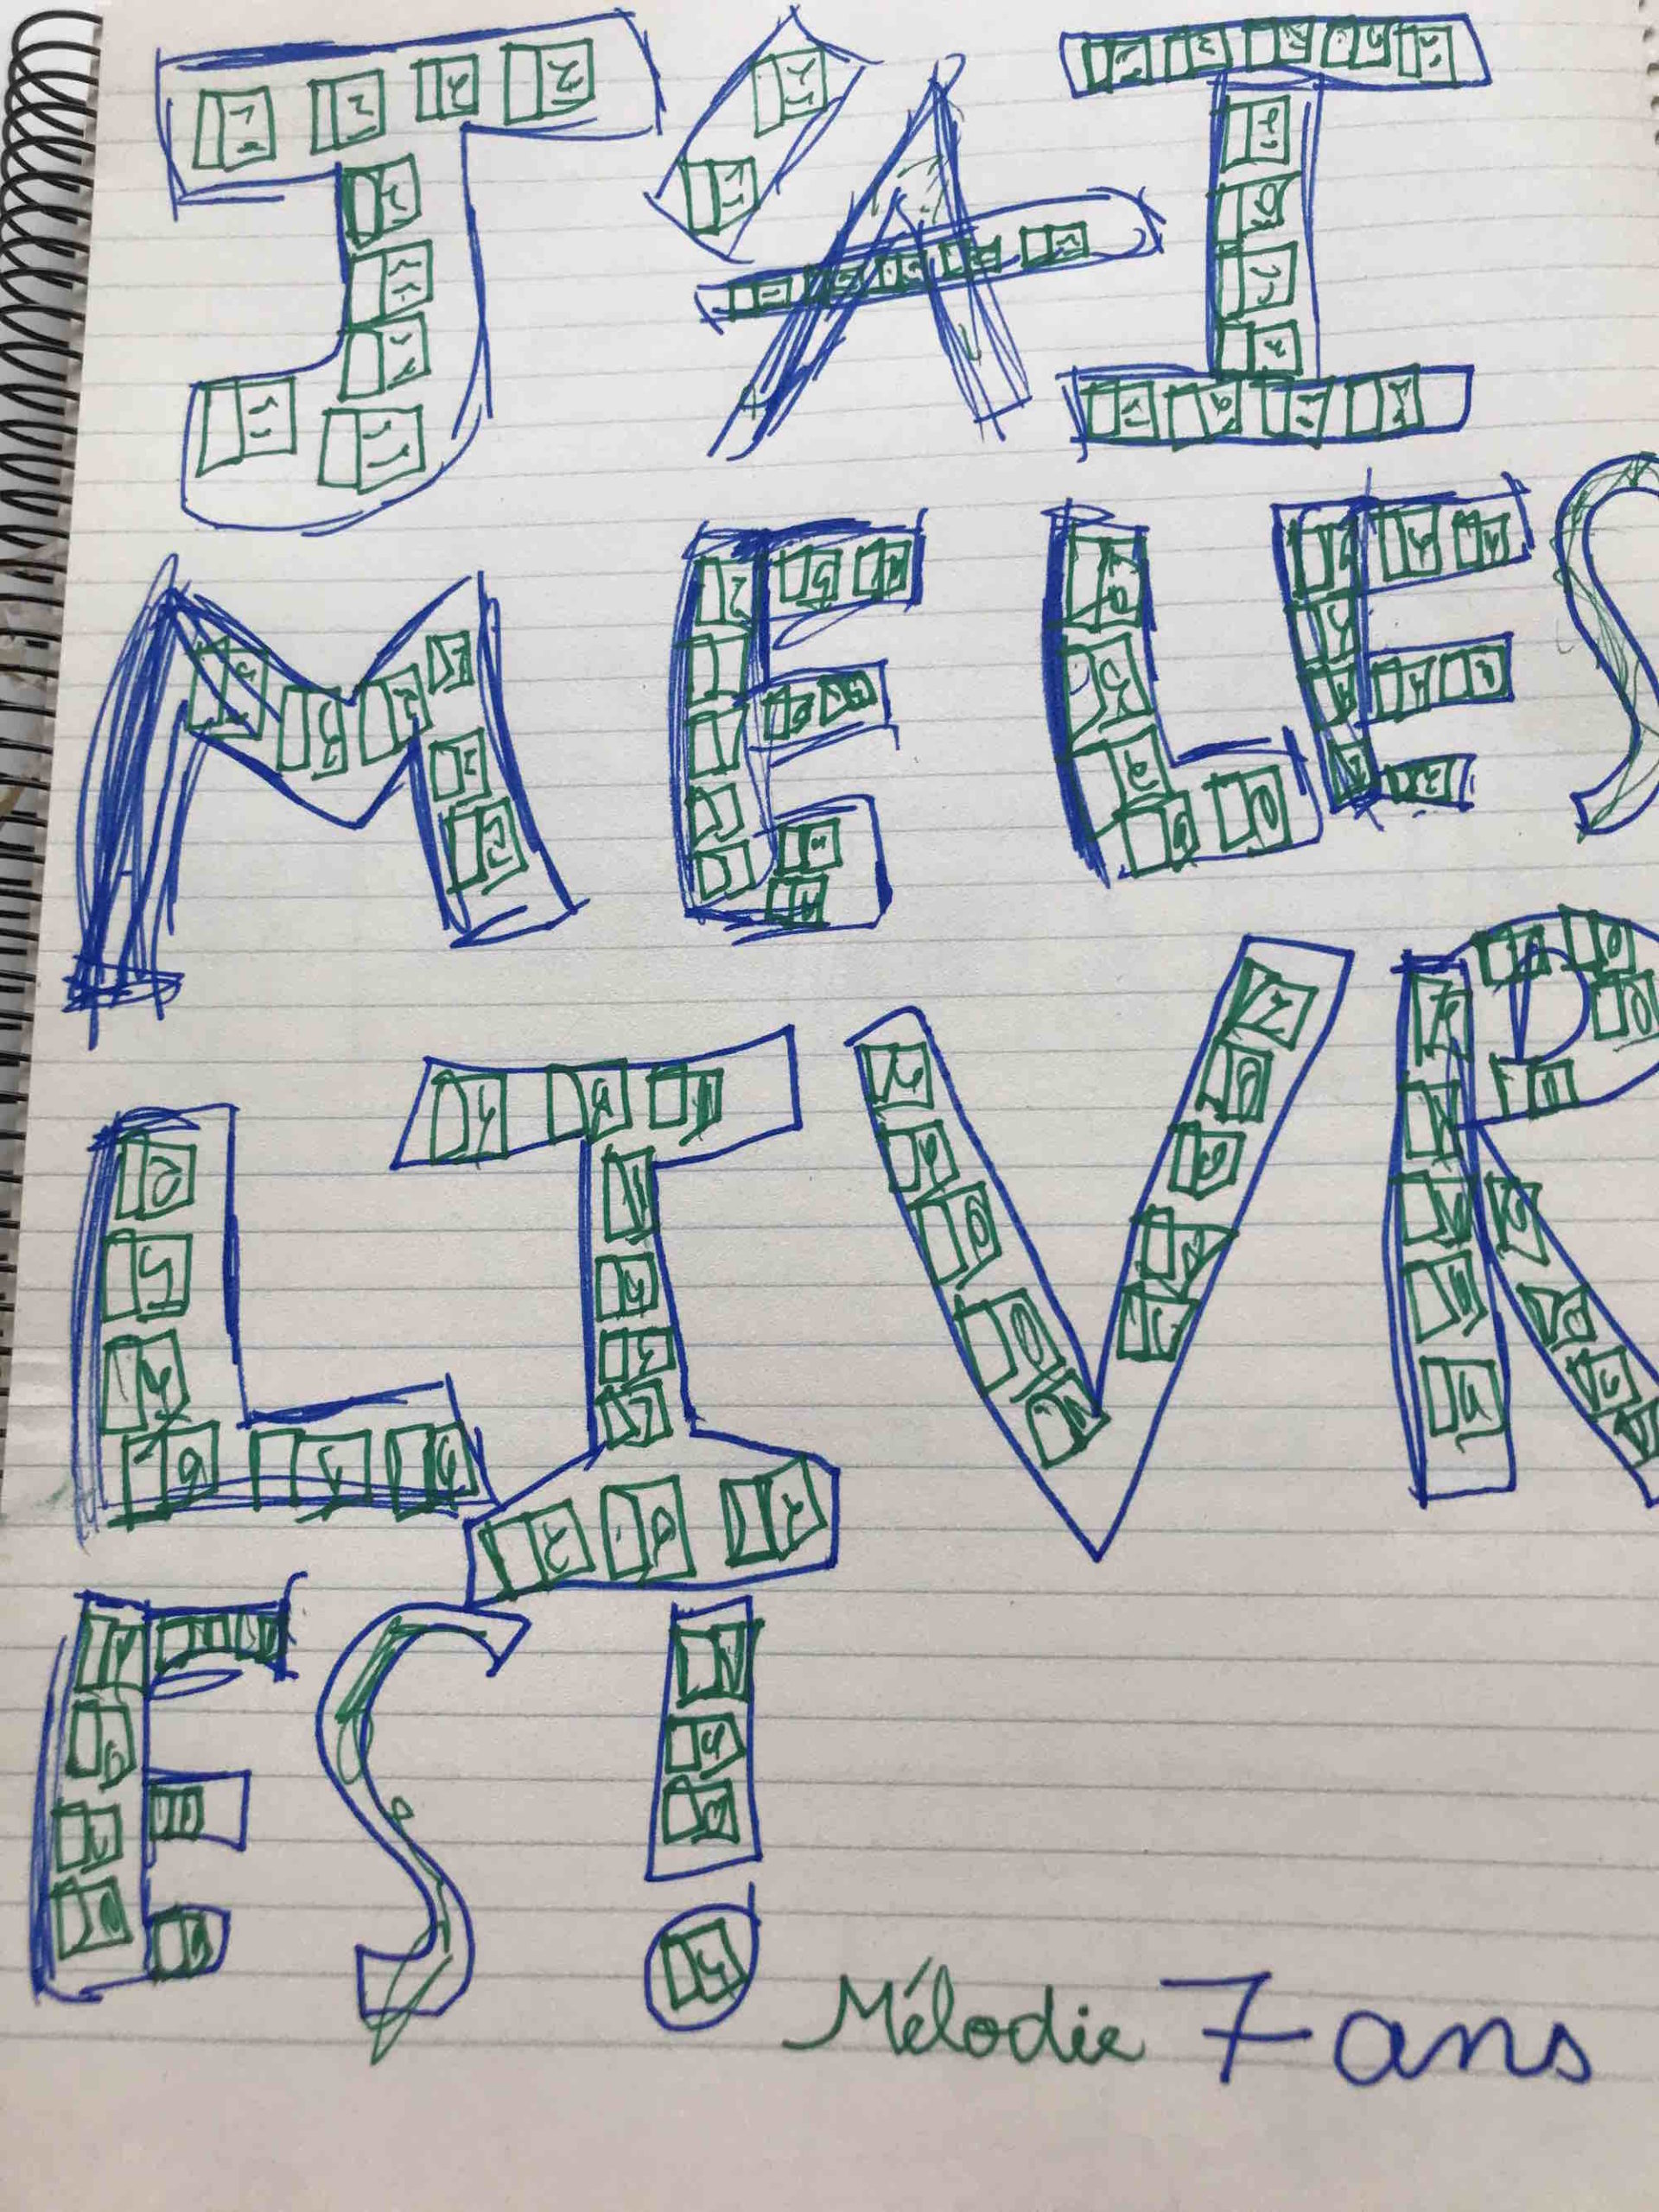 J'AI
ME LES
LIVR
ES!
Mélodie 7 ans